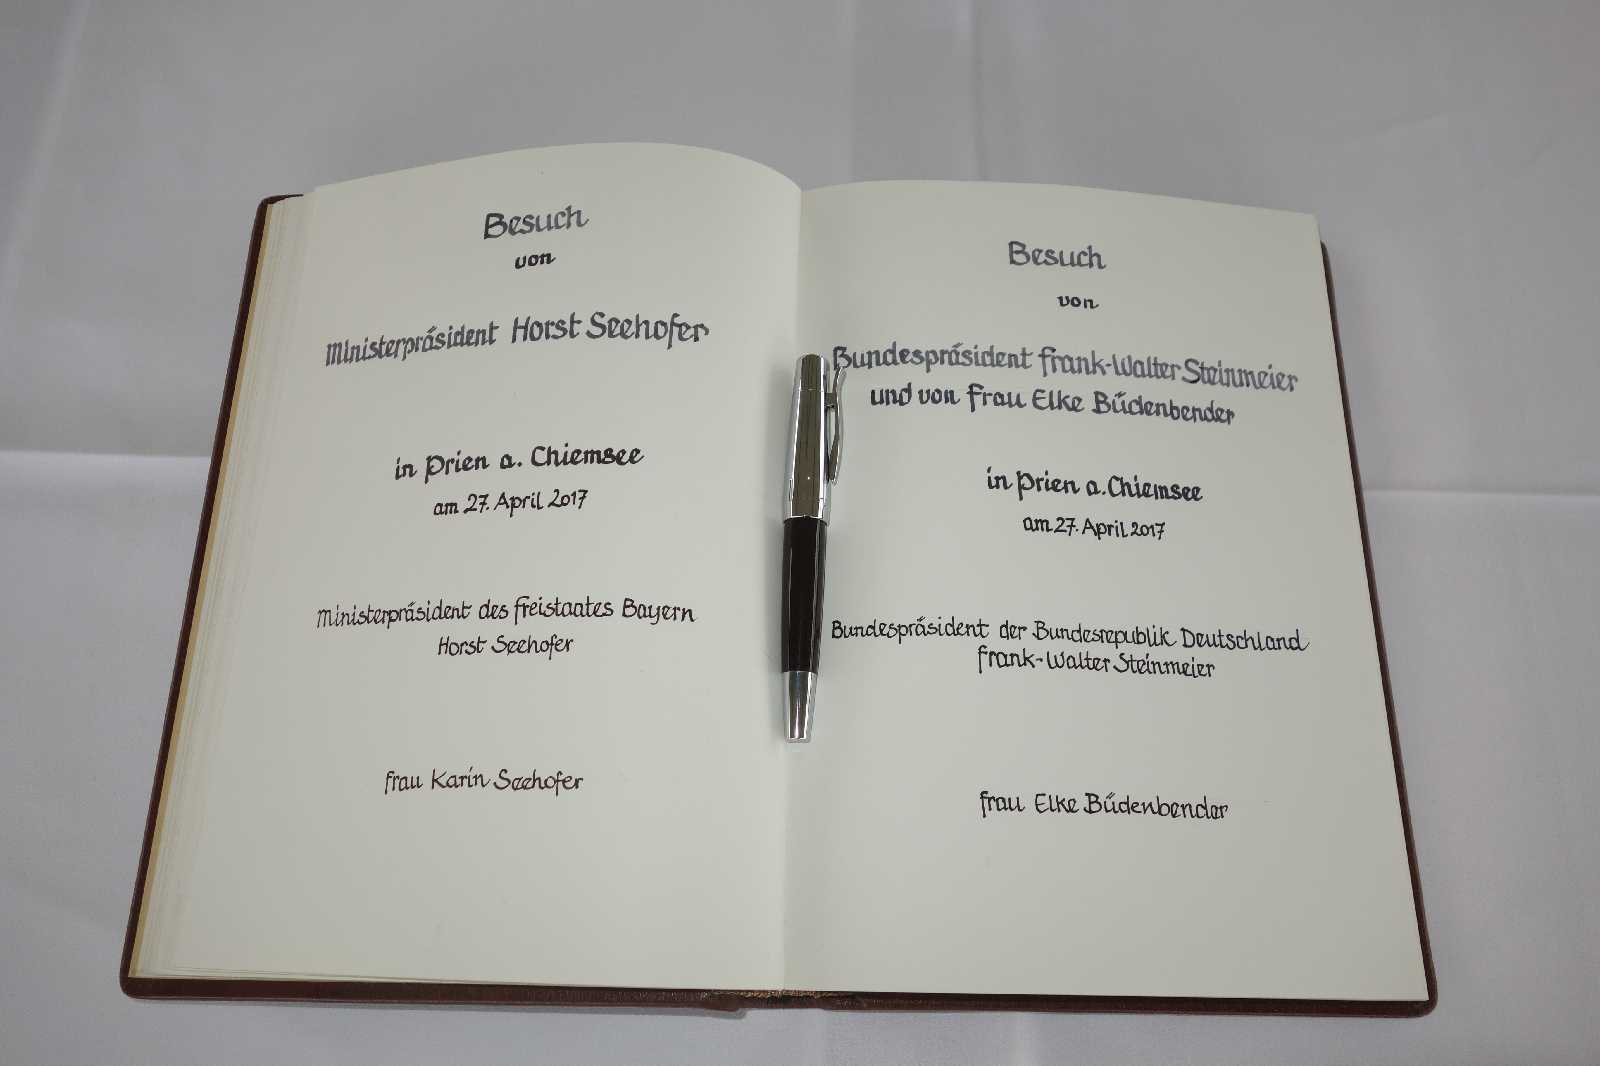 Besuch
von
Ministerpräsident Horst Seehofer
in Prien a. Chiemsee
am 27. April 2017
Ministerpräsident des Freistaates Bayern
Horst Seehofer
Frau Karin Seehofer
Besuch
von
Bundespräsident Frank-Walter Steinmeier
und von Frau Elke Büdenbender
in Prien a. Chiemsee
am 27. April 2017
Bundespräsident der Bundesrepublik Deutschland
Frank-Walter Steinmeier
Frau Elke Büdenbender